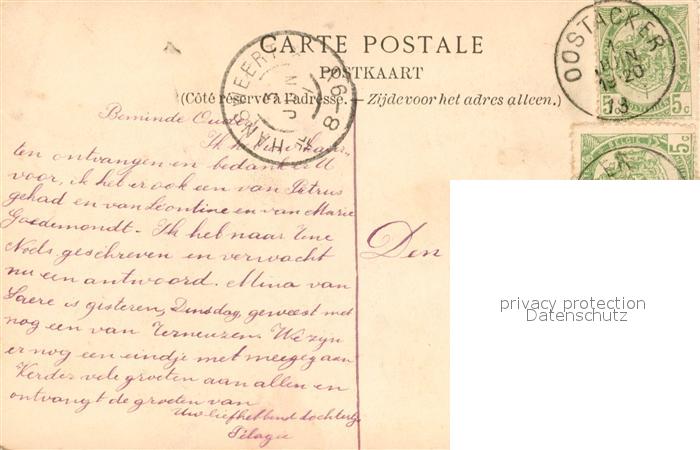 CARTE POSTALE
POSTKAART
(Côté réservé à l'adresse. — Zijde voor het adres alleen.)
OOSTACKER
JUIN
18-20
BELGIE
5c
5c
6-8
Beminde Ouders
Ik heb uwe kaar-
ten ontvangen en bedank er U
voor, ik heb er ook een van Petrus
gehad en van Leontine en van Marie
Goedemondt. Ik heb naar
Noels geschreven en verwacht
nu een antwoord. Mina van
Laere is gisteren, Dinsdag, geweest met
nog een van Terneuzen. We zijn
er nog een eindje met meegegaan
Verder vele groeten aan allen en
ontvangt de groeten van
Uw liefhebbend dochtertje
Pelagie
Den
privacy protection
Datenschutz